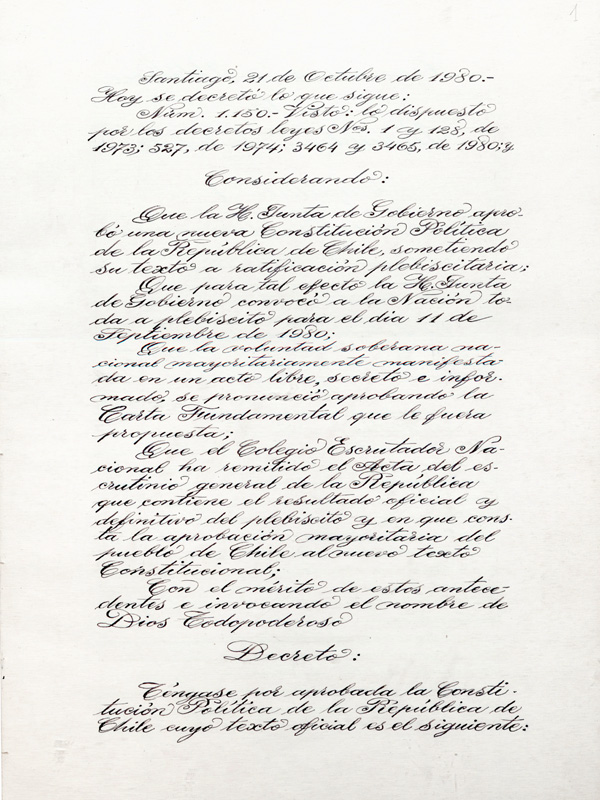 1
Santiago, 21 de Octubre de 1980.-
Hoy se decretó lo que sigue:
Núm. 1.150.- Visto: lo dispuesto
por los decretos leyes Nos. 1 y 128, de
1973; 527, de 1974; 3464 y 3465, de 1980; y
Considerando:
Que la H. Junta de Gobierno apro-
bó una nueva Constitución Política
de la República de Chile, sometiendo
su texto a ratificación plebiscitaria;
Que para tal efecto la H. Junta
de Gobierno convocó a la Nación to-
da a plebiscito para el dia 11 de
Septiembre de 1980;
Que la voluntad soberana na-
cional mayoritariamente manifesta-
da en un acto libre, secreto e infor-
mado, se pronunció aprobando la
Carta Fundamental que le fuera
propuesta;
Que el Colegio Escrutador Na-
cional ha remitido el Acta del es-
crutinio general de la República
que contiene el resultado oficial y
definitivo del plebiscito y en que cons-
ta la aprobación mayoritaria del
pueblo de Chile al nuevo texto
Constitucional;
Con el mérito de estos antece-
dentes e invocando el nombre de
Dios Todopoderoso
Decreto:
Téngase por aprobada la Consti-
tución Política de la República de
Chile cuyo texto oficial es el siguiente: